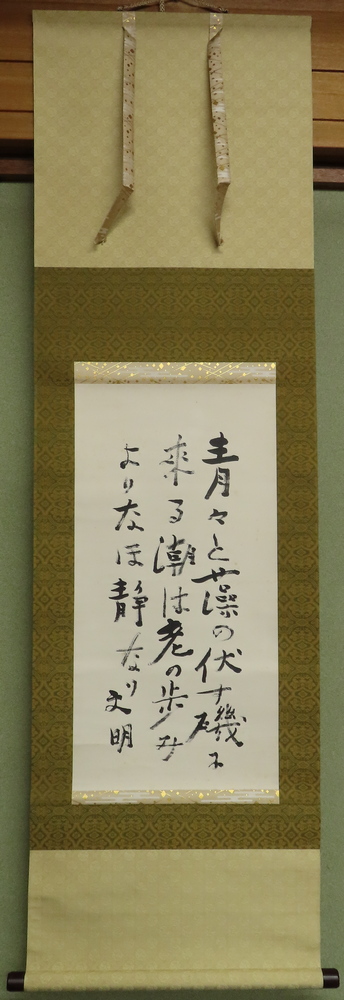 青々と藻の伏す磯に
来る潮は老の歩み
よりなほ静なり文明